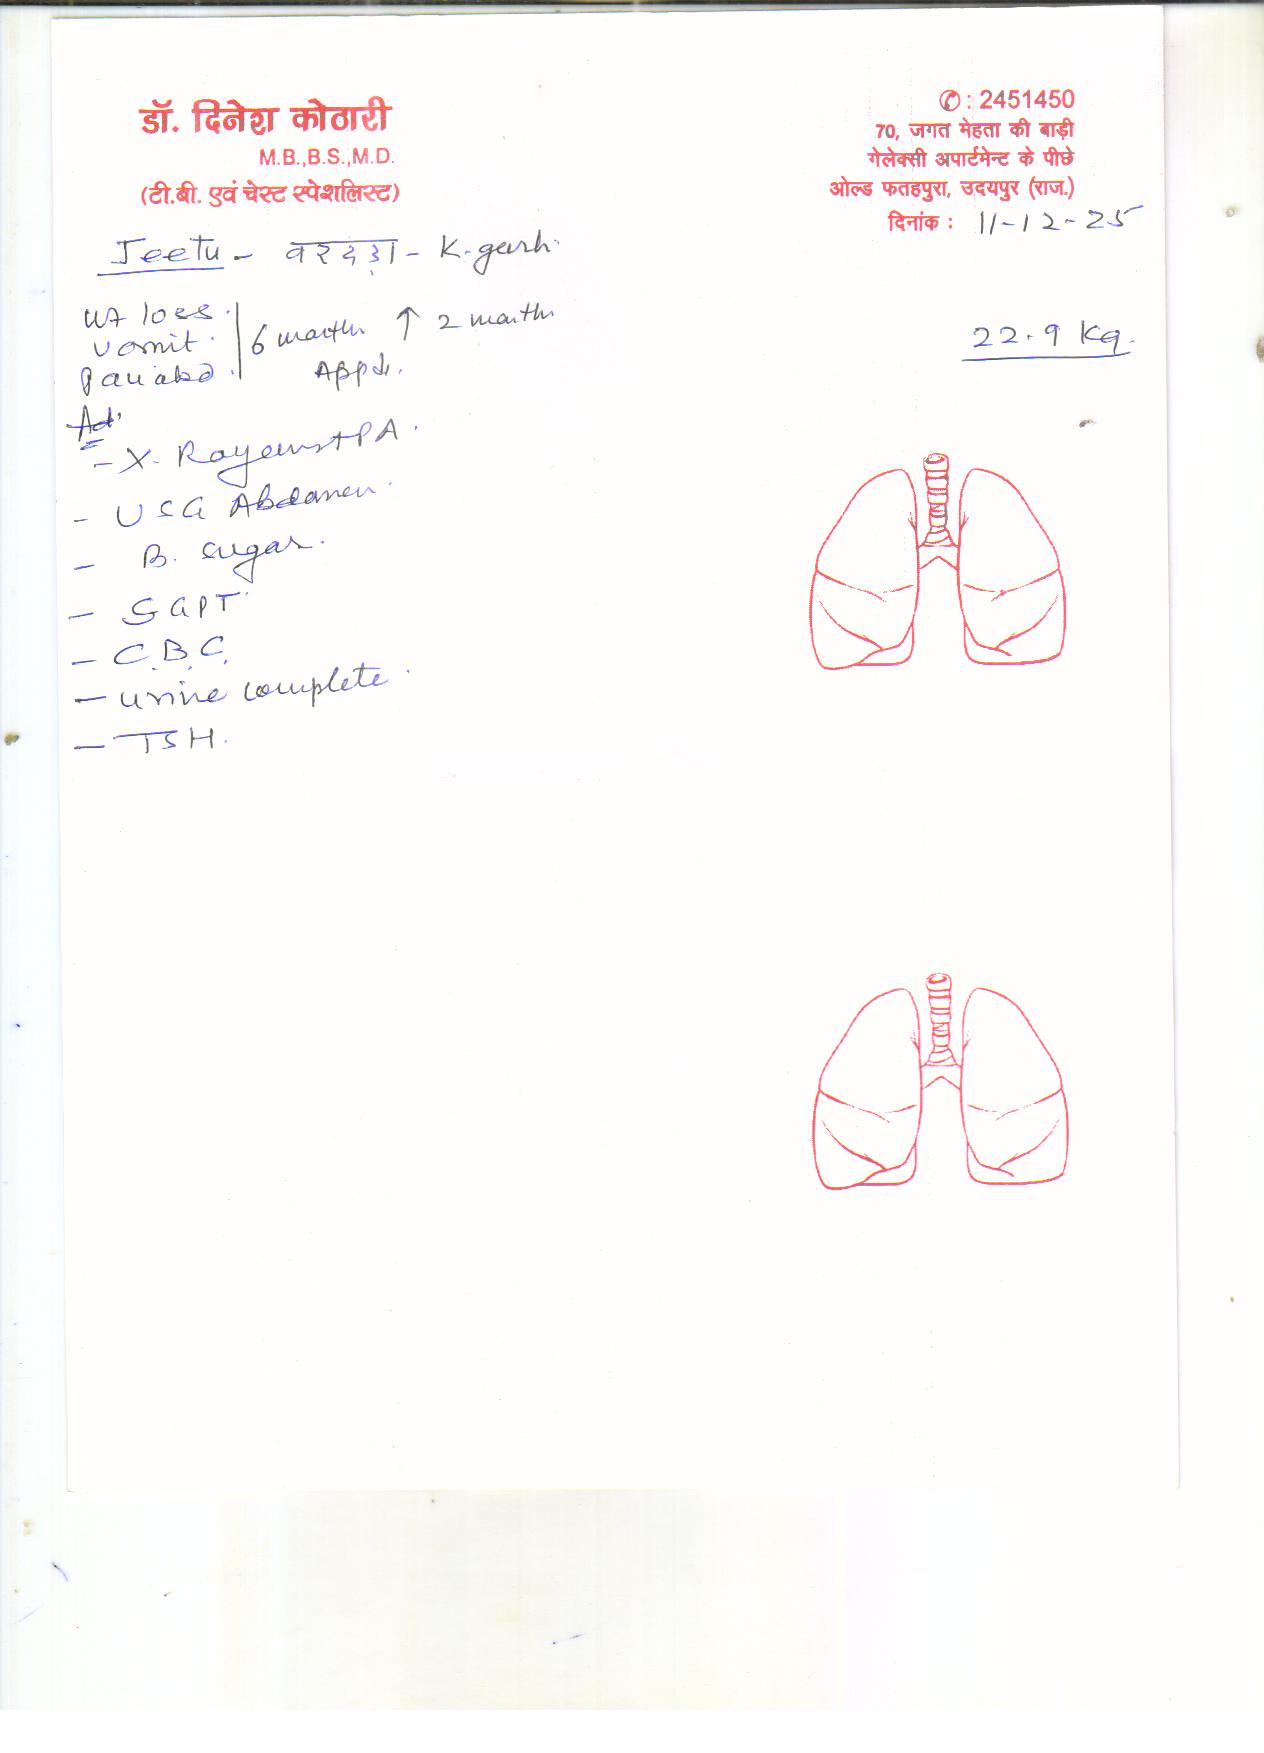 डॉ. दिनेश कोठारी
M.B.,B.S.,M.D.
(टी.बी. एवं चेस्ट स्पेशलिस्ट)
✆ : 2451450
70, जगत मेहता की बाड़ी
गेलेक्सी अपार्टमेन्ट के पीछे
ओल्ड फतहपुरा, उदयपुर (राज.)
दिनांक : 11-12-25
Jeetu - वरदड़ा - K.garh.
22.9 Kg.
Wt loss.
Vomit.
Pain abd.
6 month ↑ 2 month
App↓.
Ad.
- X-Ray chest PA.
- USG Abdomen.
- B. Sugar.
- SGPT.
- C.B.C.
- Urine complete.
- TSH.